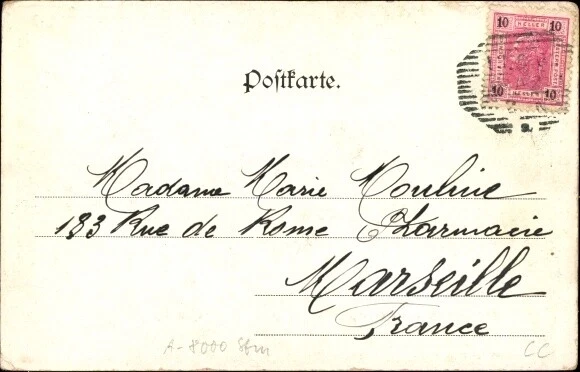 10 KELLER 10
10 10
Postkarte.
Madame Marie Mouline
183 Rue de Rome Pharmacie
Marseille
France
A-8000 Stm
CC